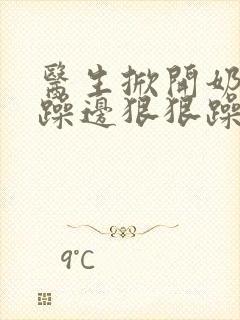 醫生掀開奶
躁邊狠狠躁
9°C